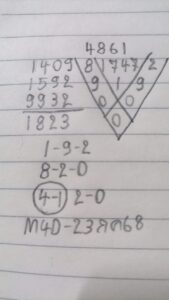 4861
1409 8 1747 2
1592 9 1 9
9932 0 0
1823 0
1-9-2
8-2-0
4-1 2-0